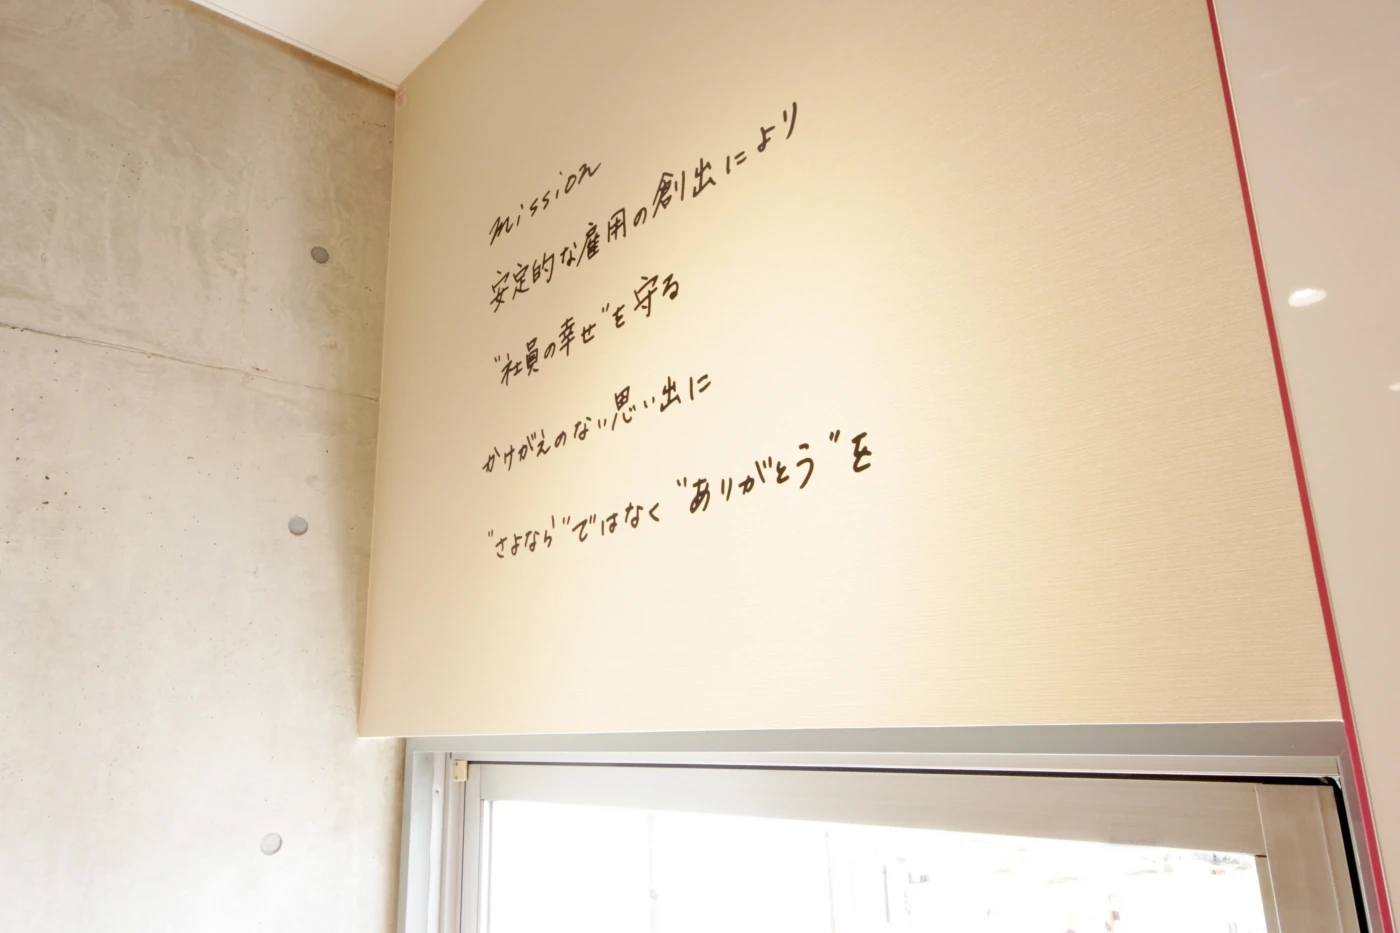 mission
安定的な雇用の創出により
"社員の幸せ"を守る
かけがえのない思い出に
"さよなら"ではなく"ありがとう"を